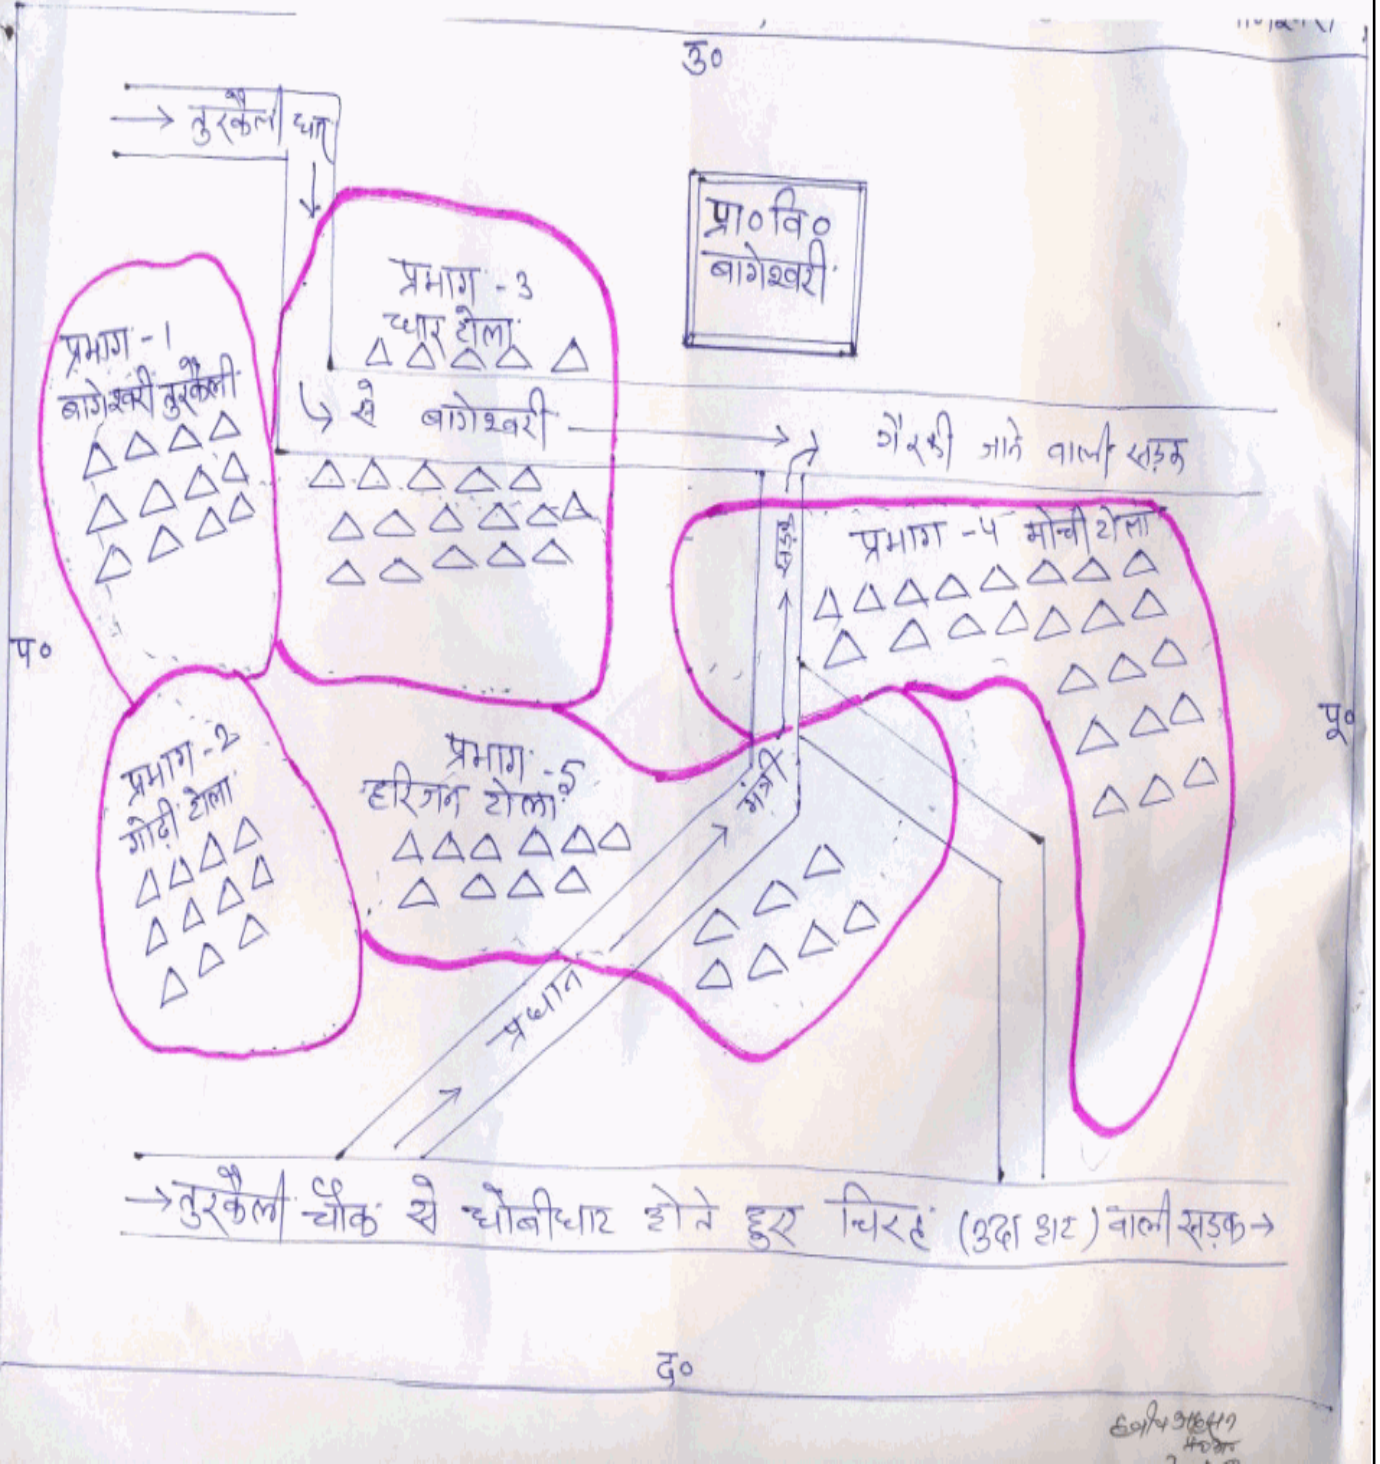 उ०
→ तुरकैली धार
प्रा० वि०
बागेश्वरी
प्रभाग - 3
धार टोला
प्रभाग - 1
बागेश्वरी तुरकैली
से बागेश्वरी → गैरकी जाने वाली सड़क
सड़क
प्रभाग - 4 मोची टोला
प०
पू०
प्रभाग - 2
गोढ़ी टोला
प्रभाग - 5
हरिजन टोला
प्रधान मंत्री
→ तुरकैली चौक से धोबीघाट होते हुए चिरह (उदा हाट) वाली सड़क →
द०